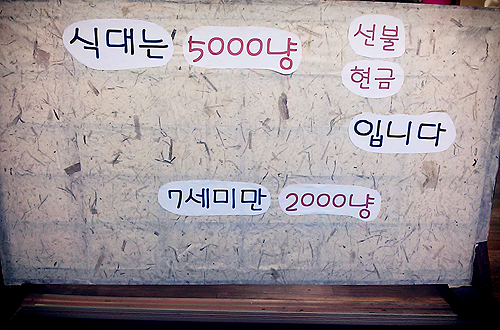 식대는 5000냥
선불
현금
입니다
7세미만 2000냥